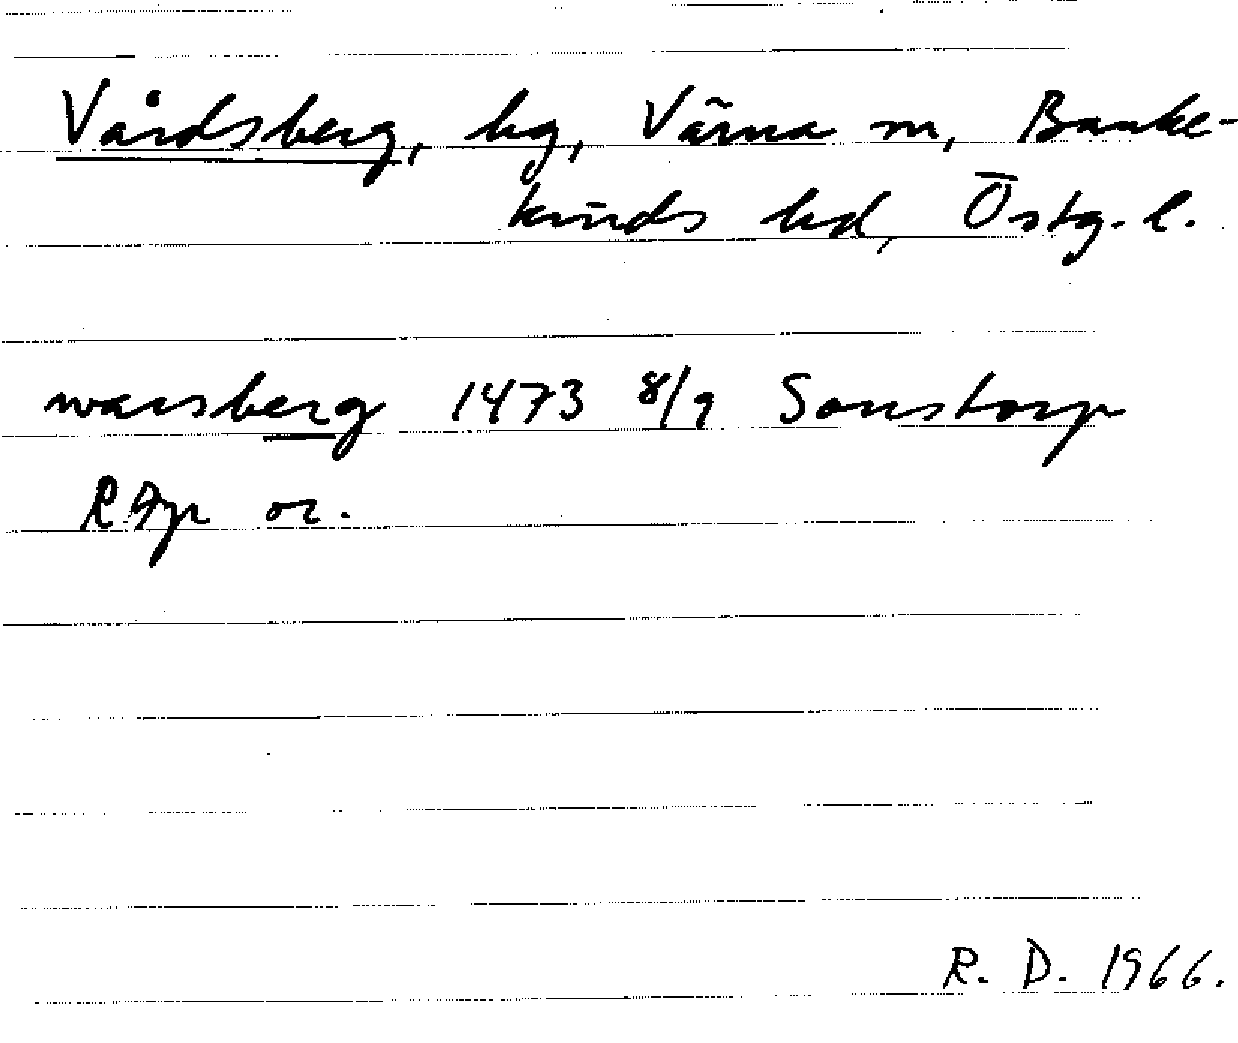 Vårdsberg, hg, Värna sn, Banke-
kinds hd, Östg. l.
warsberg 1473 8/9 Sonstorp
RAp or.
R. D. 1966.